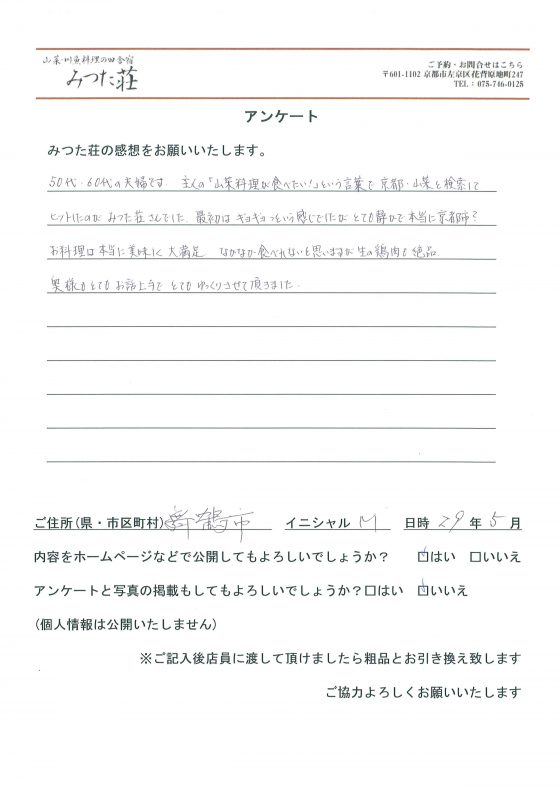 山菜・川魚料理の田舎宿
みつた荘
ご予約・お問合せはこちら
〒601-1102 京都市左京区花脊原地町247
TEL : 075-746-0125
アンケート
みつた荘の感想をお願いいたします。
50代・60代の夫婦です。主人の「山菜料理が食べたい!」という言葉で京都・山菜と検索して
ヒットしたのが みつた荘さんでした。最初は ギョギョっという感じでしたが とても静かで本当に京都市?
お料理は本当に美味しく大満足 なかなか食べれないと思いますが生の鶏肉も絶品。
奥様もとても お話上手で とても ゆっくりさせて頂きました。
ご住所(県・市区町村) 舞鶴市 イニシャル M 日時 29 年 5 月
内容をホームページなどで公開してもよろしいでしょうか? ☑はい □いいえ
アンケートと写真の掲載もしてもよろしいでしょうか?□はい ☑いいえ
(個人情報は公開いたしません)
※ご記入後店員に渡して頂けましたら粗品とお引き換え致します
ご協力よろしくお願いいたします